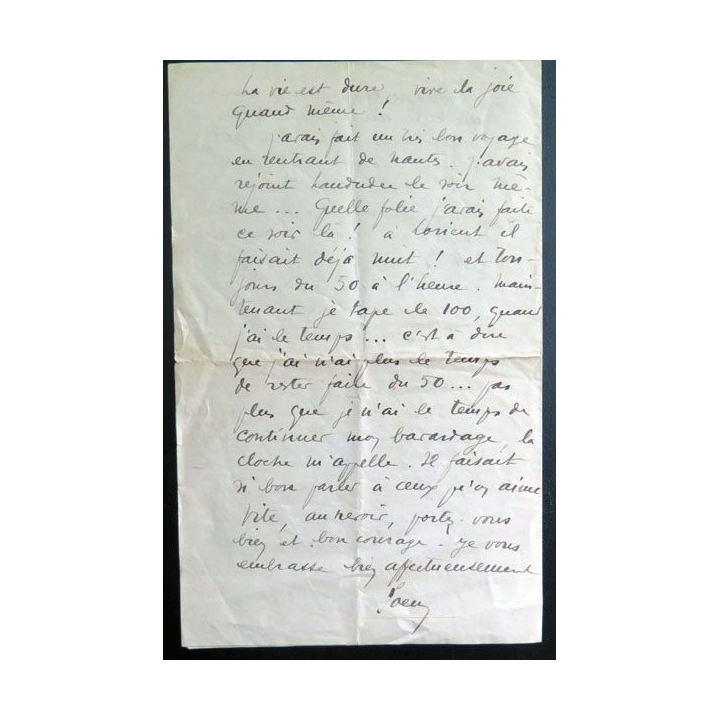 La vie est dure, vive la joie
quand même !
j'avais fait un très bon voyage
en rentrant de Nantes. j'avais
rejoint Landudec le soir mê-
me... Quelle folie j'avais faite
ce soir là ! à Lorient il
faisait déjà nuit ! et tou-
jours du 50 à l'heure. Main-
tenant je tape le 100, quand
j'ai le temps... c'est à dire
que j'ai n'ai plus le temps
de rester faire du 50... pas
plus que je n'ai le temps de
continuer mon bavardage, la
cloche m'appelle. Il faisait
si bon parler à ceux qu'on aime
Vite, au revoir, portez-vous
bien et bon courage. je vous
embrasse bien affectueusement